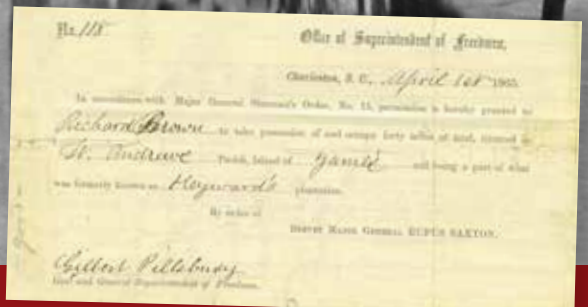 No. 118
Office of Superintendent of Freedmen,
Charleston, S. C., April 1st 1865.
In accordance with Major General Sherman's Order, No. 15, permission is hereby granted to
Richard Brown to take possession of and occupy forty acres of land, situated in
St. Andrews Parish, Island of James and being a part of what
was formerly known as Heyward's plantation.
By order of
BREVET MAJOR GENERAL RUFUS SAXTON.
Gilbert Pillsbury
and General Superintendent of Freedmen.